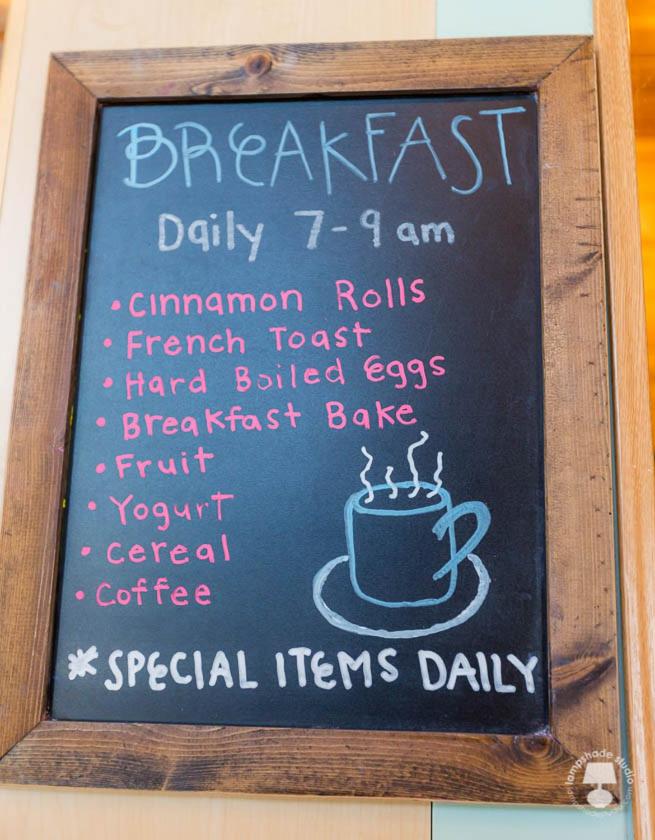 BREAKFAST
Daily 7-9 am
• Cinnamon Rolls
• French Toast
• Hard Boiled Eggs
• Breakfast Bake
• Fruit
• Yogurt
• Cereal
• Coffee
* SPECIAL ITEMS DAILY
lampshade studio